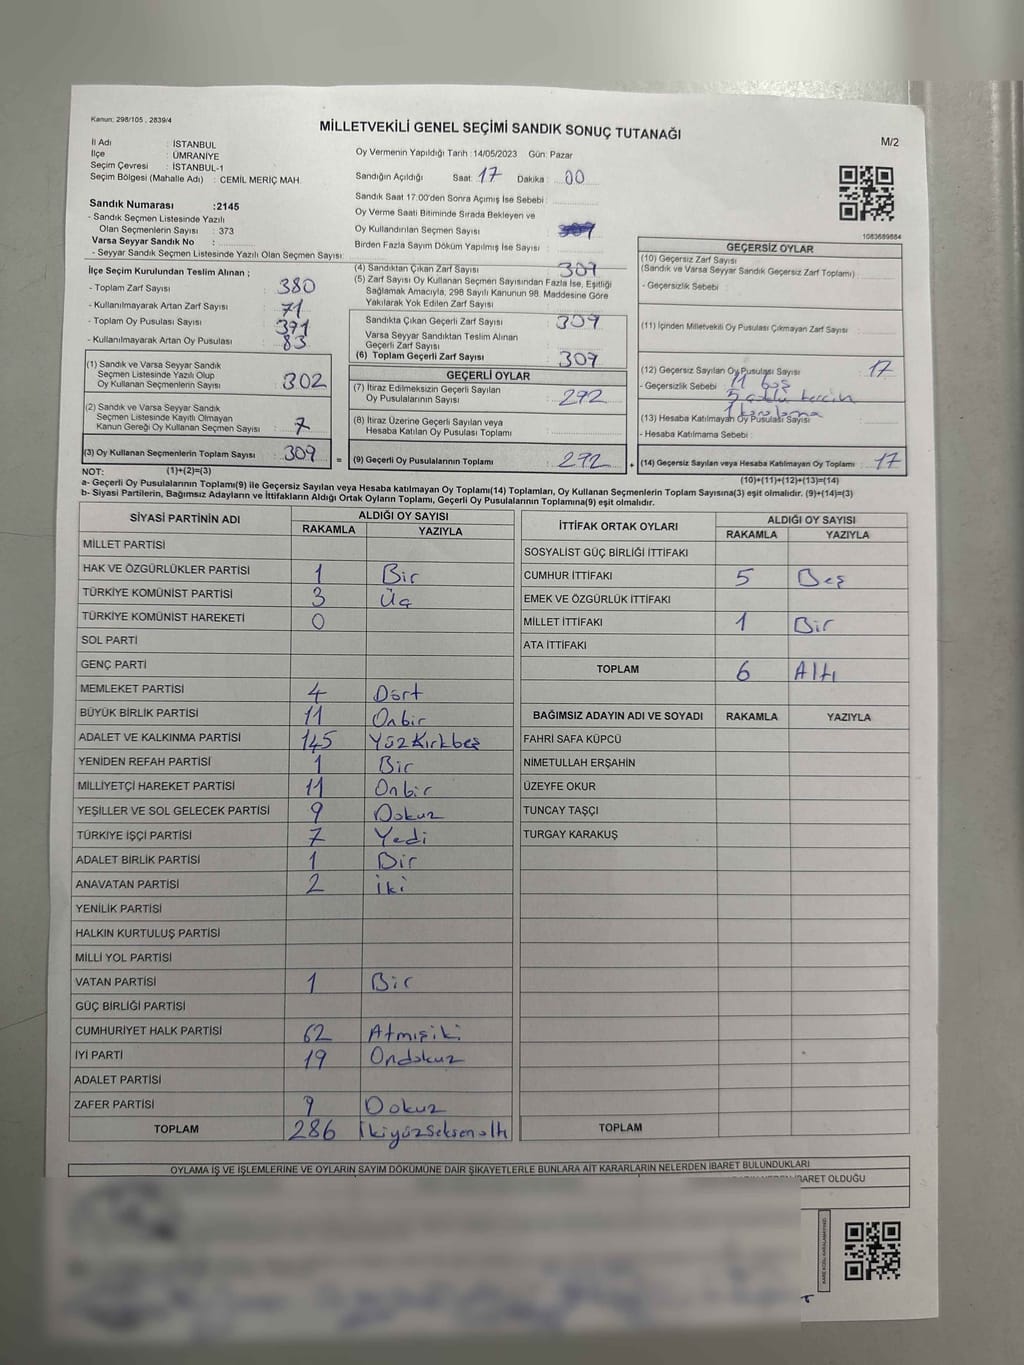 Kanun: 298/105 , 2839/4
MİLLETVEKİLİ GENEL SEÇİMİ SANDIK SONUÇ TUTANAĞI
M/2
İl Adı : İSTANBUL
İlçe : ÜMRANİYE
Seçim Çevresi : İSTANBUL-1
Seçim Bölgesi (Mahalle Adı) : CEMİL MERİÇ MAH.
Sandık Numarası :2145
- Sandık Seçmen Listesinde Yazılı
Olan Seçmenlerin Sayısı : 373
Varsa Seyyar Sandık No :
- Seyyar Sandık Seçmen Listesinde Yazılı Olan Seçmen Sayısı:
Oy Vermenin Yapıldığı Tarih :14/05/2023 Gün: Pazar
Sandığın Açıldığı Saat: 17 Dakika: 00
Sandık Saat 17:00'den Sonra Açımış İse Sebebi :
Oy Verme Saati Bitiminde Sırada Bekleyen ve
Oy Kullandırılan Seçmen Sayısı :
Birden Fazla Sayım Döküm Yapılmış İse Sayısı :
1083689884
İlçe Seçim Kurulundan Teslim Alınan ;
- Toplam Zarf Sayısı : 380
- Kullanılmayarak Artan Zarf Sayısı : 71
- Toplam Oy Pusulası Sayısı : 391
- Kullanılmayarak Artan Oy Pusulası : 83
(1) Sandık ve Varsa Seyyar Sandık
Seçmen Listesinde Yazılı Olup
Oy Kullanan Seçmenlerin Sayısı : 302
(2) Sandık ve Varsa Seyyar Sandık
Seçmen Listesinde Kayıtlı Olmayan
Kanun Gereği Oy Kullanan Seçmen Sayısı : 7
(3) Oy Kullanan Seçmenlerin Toplam Sayısı : 309
(4) Sandıktan Çıkan Zarf Sayısı : 309
(5) Zarf Sayısı Oy Kullanan Seçmen Sayısından Fazla İse, Eşitliği
Sağlamak Amacıyla, 298 Sayılı Kanunun 98. Maddesine Göre
Yakılarak Yok Edilen Zarf Sayısı :
Sandıkta Çıkan Geçerli Zarf Sayısı : 309
Varsa Seyyar Sandıktan Teslim Alınan
Geçerli Zarf Sayısı :
(6) Toplam Geçerli Zarf Sayısı : 309
GEÇERLİ OYLAR
(7) İtiraz Edilmeksizin Geçerli Sayılan
Oy Pusulalarının Sayısı : 292
(8) İtiraz Üzerine Geçerli Sayılan veya
Hesaba Katılan Oy Pusulası Toplamı :
= (9) Geçerli Oy Pusulalarının Toplamı : 292
GEÇERSİZ OYLAR
(10) Geçersiz Zarf Sayısı
(Sandık ve Varsa Seyyar Sandık Geçersiz Zarf Toplamı) :
- Geçersizlik Sebebi :
(11) İçinden Milletvekili Oy Pusulası Çıkmayan Zarf Sayısı :
(12) Geçersiz Sayılan Oy Pusulası Sayısı : 17
- Geçersizlik Sebebi : 11 boş
5 çoklu tercih
1 karalama
(13) Hesaba Katılmayan Oy Pusulası Sayısı :
- Hesaba Katılmama Sebebi :
+ (14) Geçersiz Sayılan veya Hesaba Katılmayan Oy Toplamı : 17
NOT: (1)+(2)=(3)
(10)+(11)+(12)+(13)=(14)
a- Geçerli Oy Pusulalarının Toplamı(9) ile Geçersiz Sayılan veya Hesaba katılmayan Oy Toplamı(14) Toplamları, Oy Kullanan Seçmenlerin Toplam Sayısına(3) eşit olmalıdır. (9)+(14)=(3)
b- Siyasi Partilerin, Bağımsız Adayların ve İttifakların Aldığı Ortak Oyların Toplamı, Geçerli Oy Pusulalarının Toplamına(9) eşit olmalıdır.
SİYASİ PARTİNİN ADI ALDIĞI OY SAYISI
RAKAMLA YAZIYLA
MİLLET PARTİSİ
HAK VE ÖZGÜRLÜKLER PARTİSİ 1 Bir
TÜRKİYE KOMÜNİST PARTİSİ 3 Üç
TÜRKİYE KOMÜNİST HAREKETİ 0
SOL PARTİ
GENÇ PARTİ
MEMLEKET PARTİSİ 4 Dört
BÜYÜK BİRLİK PARTİSİ 11 Onbir
ADALET VE KALKINMA PARTİSİ 145 YüzKırkbeş
YENİDEN REFAH PARTİSİ 1 Bir
MİLLİYETÇİ HAREKET PARTİSİ 11 Onbir
YEŞİLLER VE SOL GELECEK PARTİSİ 9 Dokuz
TÜRKİYE İŞÇİ PARTİSİ 7 Yedi
ADALET BİRLİK PARTİSİ 1 Bir
ANAVATAN PARTİSİ 2 iki
YENİLİK PARTİSİ
HALKIN KURTULUŞ PARTİSİ
MİLLİ YOL PARTİSİ
VATAN PARTİSİ 1 Bir
GÜÇ BİRLİĞİ PARTİSİ
CUMHURİYET HALK PARTİSİ 62 Atmışiki
İYİ PARTİ 19 Ondokuz
ADALET PARTİSİ
ZAFER PARTİSİ 9 Dokuz
TOPLAM 286 İkiyüzSeksenaltı
İTTİFAK ORTAK OYLARI ALDIĞI OY SAYISI
RAKAMLA YAZIYLA
SOSYALİST GÜÇ BİRLİĞİ İTTİFAKI
CUMHUR İTTİFAKI 5 Beş
EMEK VE ÖZGÜRLÜK İTTİFAKI
MİLLET İTTİFAKI 1 Bir
ATA İTTİFAKI
TOPLAM 6 Altı
BAĞIMSIZ ADAYIN ADI VE SOYADI RAKAMLA YAZIYLA
FAHRİ SAFA KÜPCÜ
NİMETULLAH ERŞAHİN
ÜZEYFE OKUR
TUNCAY TAŞÇI
TURGAY KARAKUŞ
TOPLAM
OYLAMA İŞ VE İŞLEMLERİNE VE OYLARIN SAYIM DÖKÜMÜNE DAİR ŞİKAYETLERLE BUNLARA AİT KARARLARIN NELERDEN İBARET BULUNDUKLARI
İBARET OLDUĞU